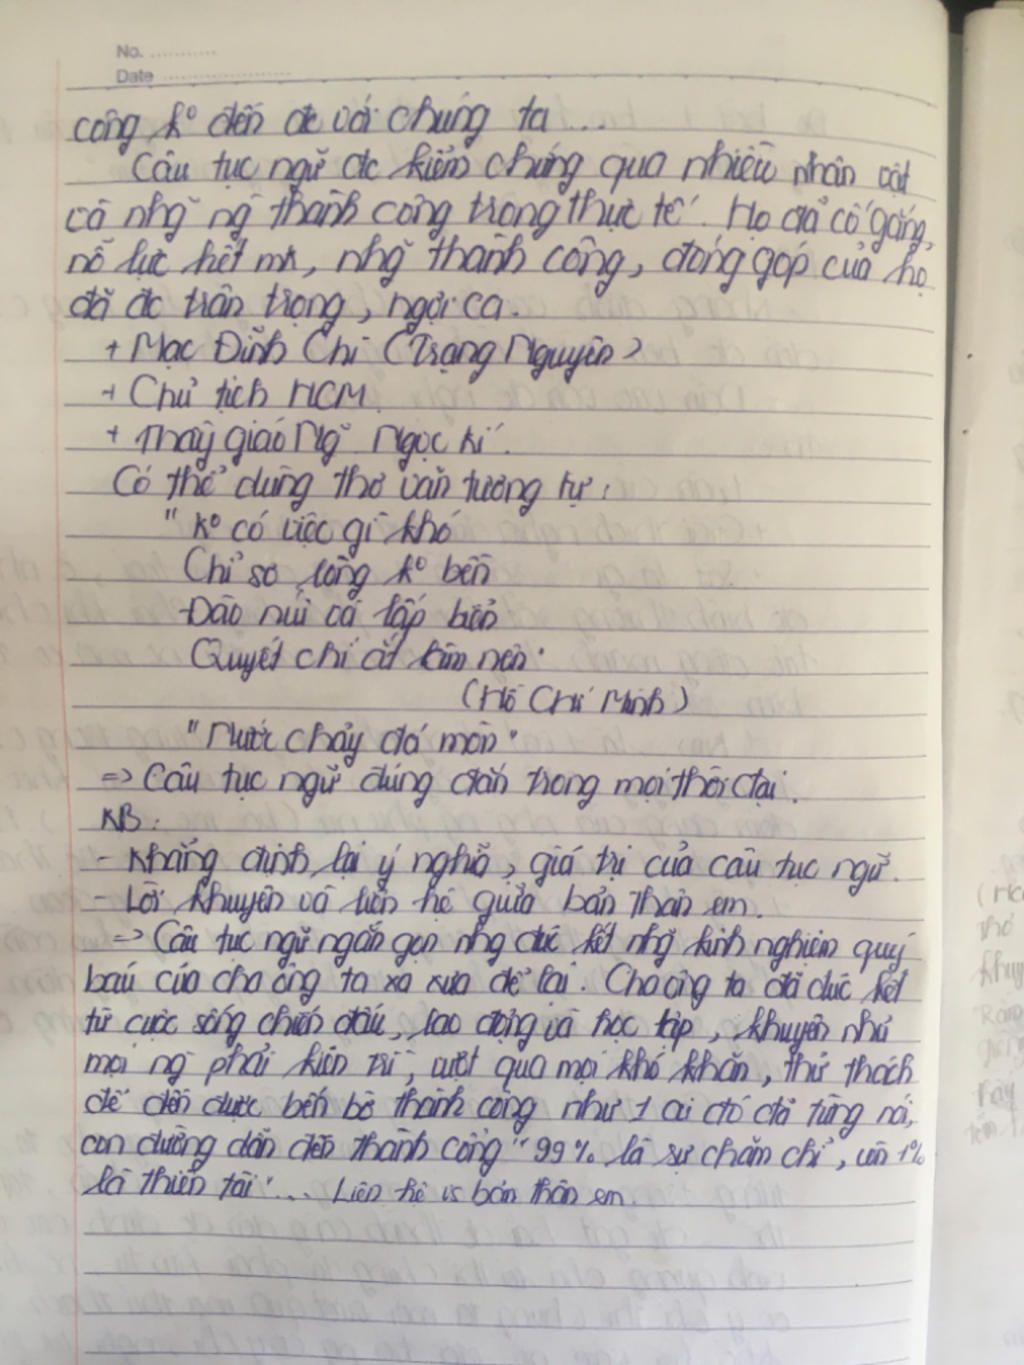 No. ............
Date ......................
công k° đến đc với chúng ta ...
Câu tục ngữ đc kiểm chứng qua nhiều nhân vật
có nhg~ ng` thành công trong thực tế. Họ đã cố gắng,
nỗ lực hết mk, nhg~ thành công, đóng góp của họ
đã đc trân trọng, ngợi ca.
+ Mạc Đĩnh Chi (Trạng Nguyên)
+ Chủ tịch HCM.
+ Thầy giáo Ng~ Ngọc Kí.
Có thể dùng thơ văn tương tự:
"K° có việc gì khó
Chỉ sợ lòng k° bền
Đào núi và lấp biển
Quyết chí ắt làm nên"
(Hồ Chí Minh)
"Nước chảy đá mòn"
=> Câu tục ngữ đúng đắn trong mọi thời đại.
KB:
- Khẳng định lại ý nghĩa, giá trị của câu tục ngữ.
- Lời khuyên và liên hệ giữa bản thân em.
=> Câu tục ngữ ngắn gọn nhg đúc kết nhg~ kinh nghiệm quý
báu của cha ông ta xa xưa để lại. Cha ông ta đã đúc kết
từ cuộc sống chiến đấu, lao động và học tập, khuyên nhủ
mọi ng` phải kiên trì, vượt qua mọi khó khăn, thử thách
để đến được bến bờ thành công như 1 ai đó đã từng nói,
con đường dẫn đến thành công "99% là sự chăm chỉ, còn 1%
là thiên tài"... Liên hệ vs bản thân em.